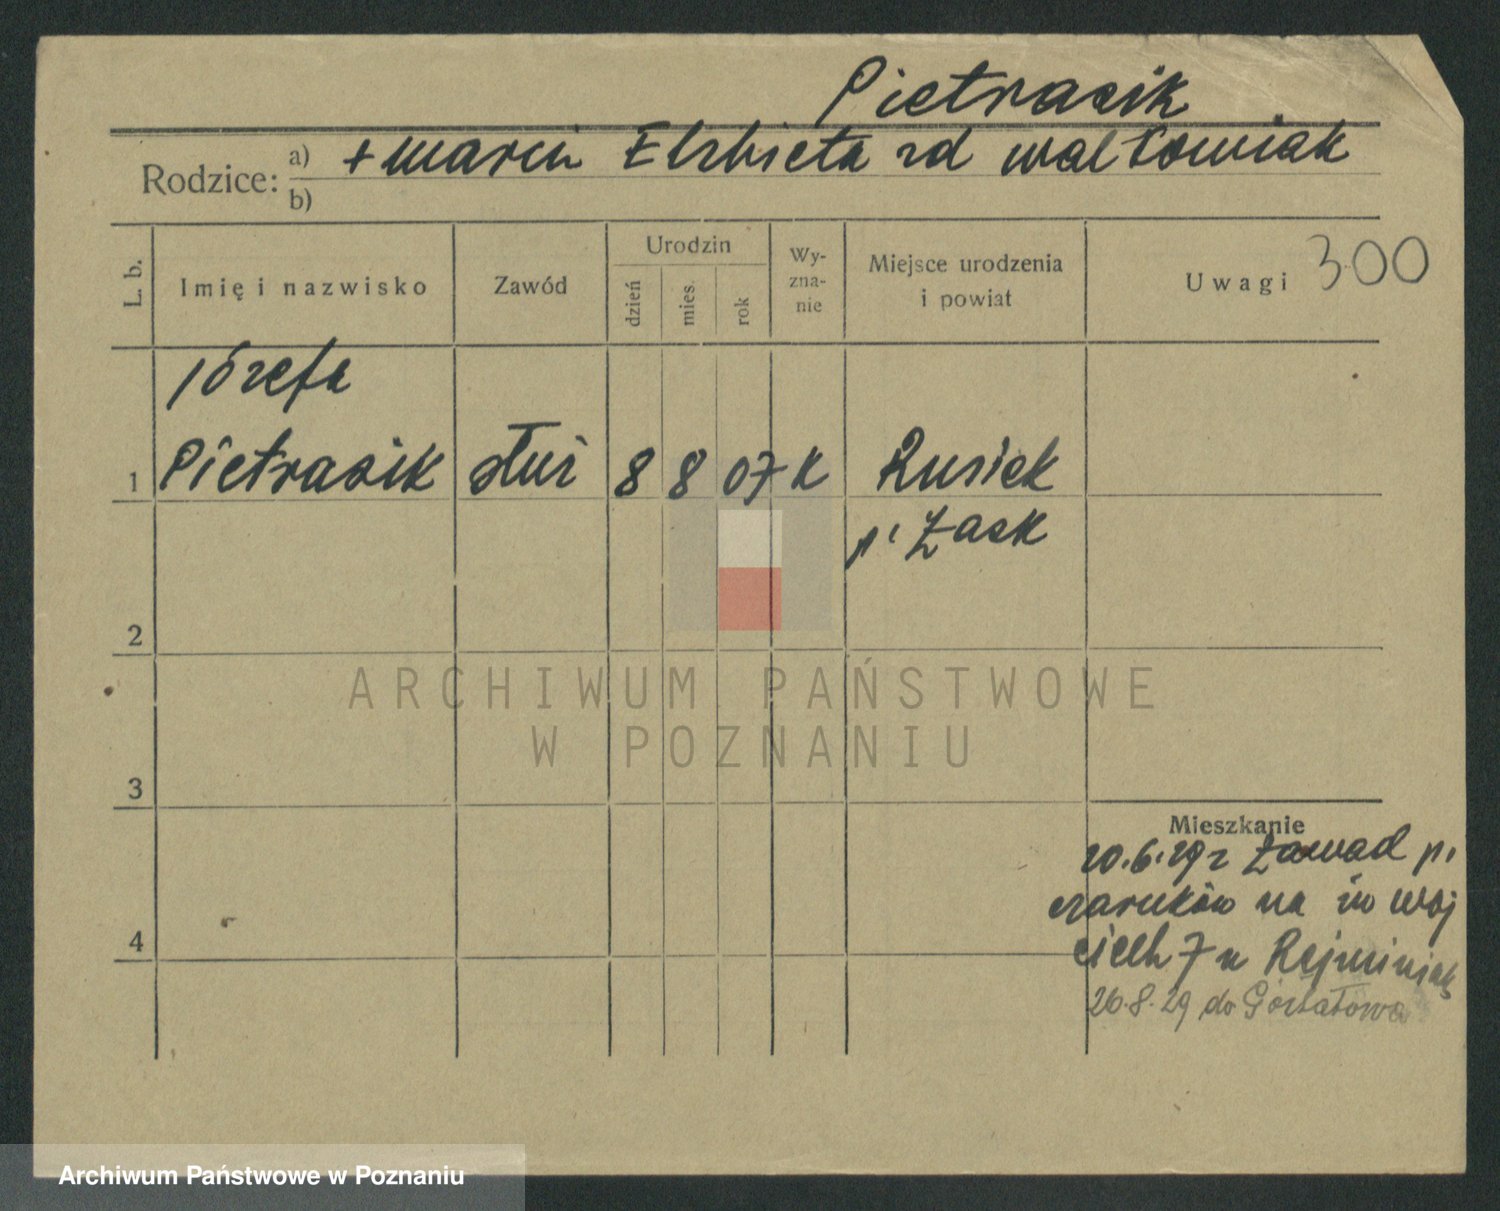 Pietrasik
Rodzice: a) + Marcin Elżbieta zd Waltowiak
b)
L. b.
Imię i nazwisko
Zawód
Urodzin
dzień
mies.
rok
Wy-
zna-
nie
Miejsce urodzenia
i powiat
Uwagi 300
Józefa
1 Pietrasik służ 8 8 07 K Rusiek
p. Łask
2
ARCHIWUM PAŃSTWOWE
W POZNANIU
3
Mieszkanie
20.6.29 z Zawad p.
na św Woj
4
ciech 7 u
26.8.29 do Gortatowa
Archiwum Państwowe w Poznaniu